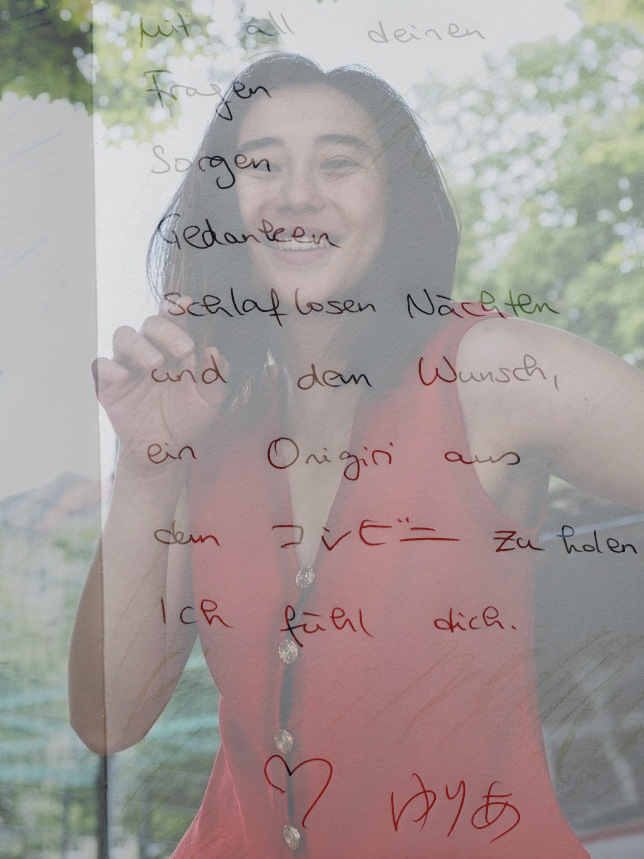 mit all deinen
Fragen
Sorgen
Gedanken
schlaflosen Nächten
und dem Wunsch,
ein Onigiri aus
dem コンビニ zu holen
Ich fühl dich.
♡ ゆりあ